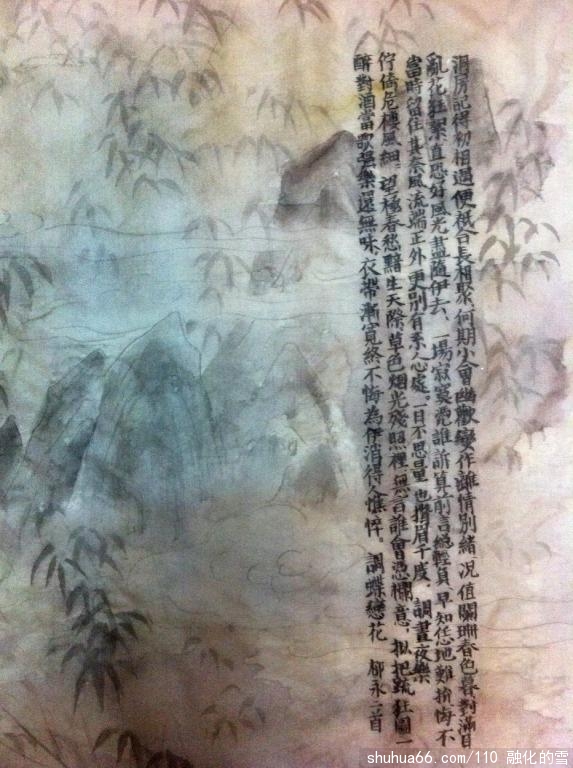 洞房記得初相遇便衹合長相聚何期小會幽歡變作離情別緒況值闌珊春色暮對滿目
亂花狂絮、直恐好風光盡隨伊去、一場寂寞凭誰訴算前言總輕負早知恁地難拚悔不
當時留住其奈風流端正外更別有系人心處。一日不思量也攢眉千度。調晝夜樂
佇倚危樓風細、望極春愁黯生天際草色烟光殘照裡、無言誰會憑欄意、拟把疏狂圖一
醉對酒當歌強樂還無味、衣帶漸寬終不悔為伊消得人憔悴。調蝶戀花 柳永二首
shuhua66.com/110 融化的雪